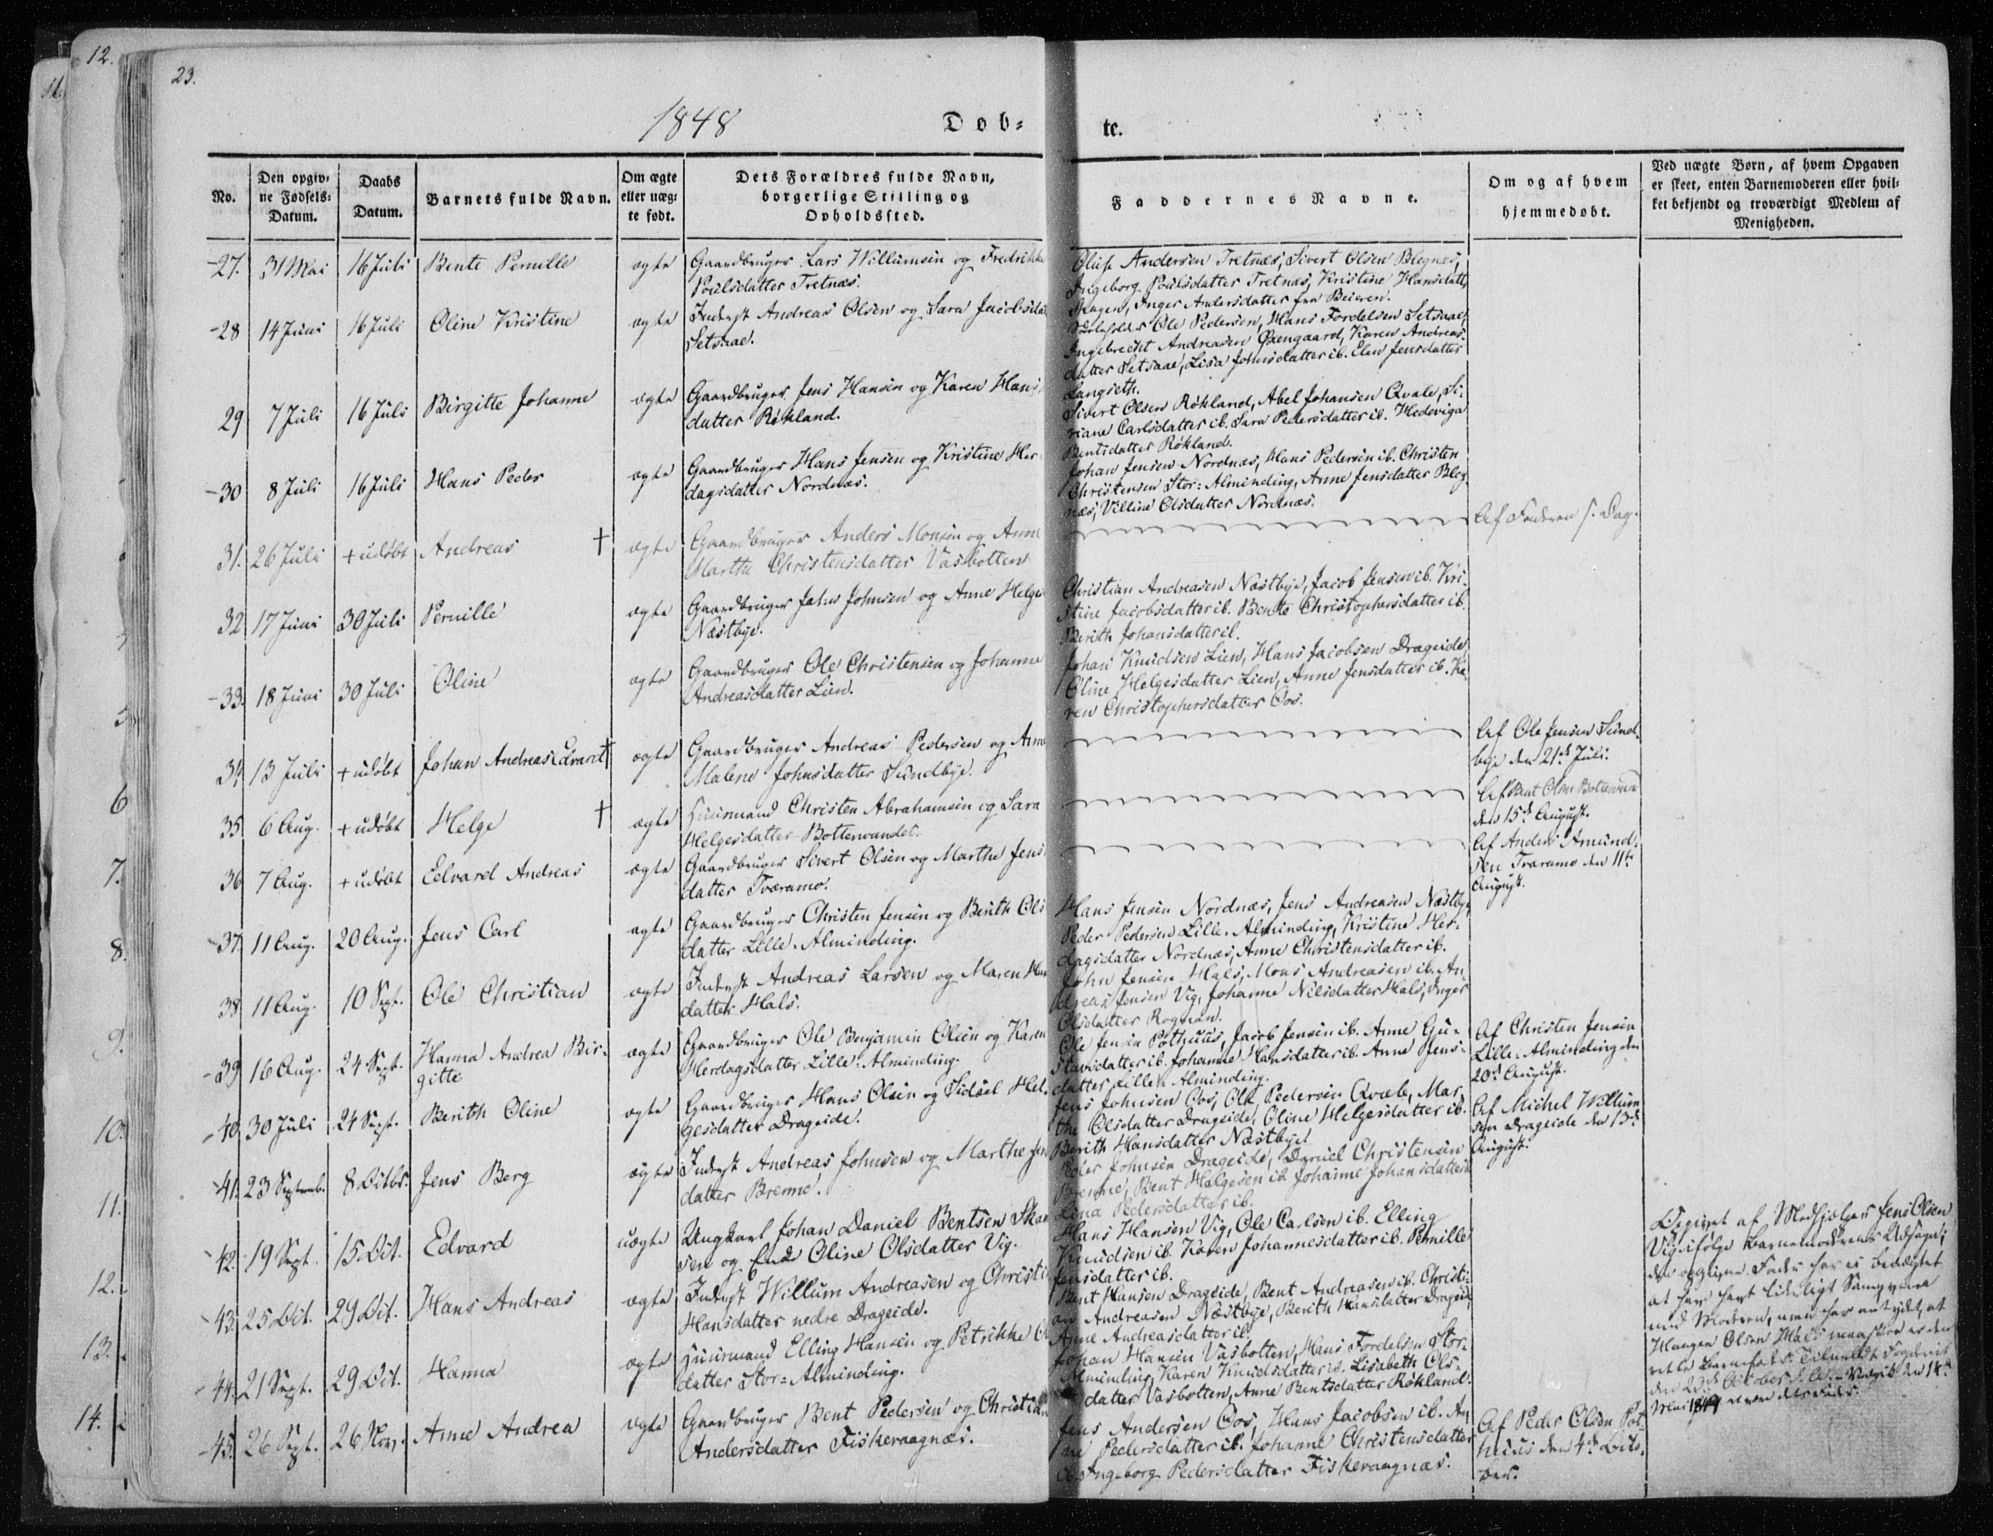 12.
11.
23.
1848
Döb=
te.
No.
Den opgiv=
ne Fødsels=
Datum.
Daabs
Datum.
Barnets fulde Navn.
Om ægte
eller uæg=
te født.
Dets Forældres fulde Navn,
borgerlige Stilling og
Opholdssted.
Faddernes Navne.
Om og af hvem
hjemmedøbt.
Ved uægte Børn, af hvem Opgaven
er skeet, enten Barnemoderen eller hvil=
ket bekjendt og troværdigt Medlem af
Menigheden.
27. 31 Mai 16 Juli Bente Pernille ægte Gaardbruger Lars Willumsen og Fredrikke
Poulsdatter Tretnæs.
Andersen Tretnæs, Sivert Olsen Blegnæs,
Ingeborg Poulsdatter Tretnæs, Kristine Hansdatt.
Skagen, Inger Andersdatter fra Beieren.
28 14 Juni 16 Juli Oline Kristine ægte Inderst Andreas Olsen og Sara Jacobsda
Setsaae.
Ole Pedersen, Hans Fordelsen Setsaae,
Ingebrecht Andreasen Øxengaard, Karen Andreas=
datter Setsaae, Lisa Johnsdatter ib. Elen Jensdatter
Langseth.
29 7 Juli 16 Juli Birgitte Johanne ægte Gaardbruger Jens Hansen og Karen Hans
datter Røkland.
Sivert Olsen Røkland, Abel Johansen Qvale, Si=
riane Carlsdatter ib. Sara Pedersdatter ib. Hedeviga
Bentsdatter Røkland.
30 8 Juli 16 Juli Hans Peder ægte Gaardbruger Hans Jensen og Kristine Her
dagsdatter Nordnæs.
Johan Jensen Nordnæs, Hans Pedersen ib. Christen
Christensen Stor=Alminding, Anne Jensdatter Bleg
næs, Olsdatter Nordnæs.
31. 26 Juli + udøbt Andreas † ægte Gaardbruger Anders Monsen og Anne
Marthe Christensdatter Vasbotten
Af Faderen s. Dag.
32 17 Juni 30 Juli Pernille ægte Gaardbruger Johnsen og Anne Helge
Næstbye.
Christian Andreasen Næstbye, Jacob Jensen ib. Kri=
stine Jacobsdatter ib. Bente Christophersdatter ib.
Berith Johansdatter ib.
33. 18 Juni 30 Juli Oline ægte Gaardbruger Ole Christensen og Johanne
Andreasdatter Lien.
Johan Knudsen Lien, Hans Jacobsen Drageide,
Oline Helgesdatter Lien, Anne Jensdatter ib. Ka=
ren Christophersdatter Oos.
34. 13 Juli + udøbt Johan Andreas Edvard † ægte Gaardbruger Andreas Pedersen og Anne
Malene Johnsdatter Sundbye.
Af Ole Jensen Sund=
bye den 21de Juli.
35. 6 Aug. + udøbt Helge † ægte Huusmand Christen Abrahamsen og Sara
Helgesdatter Bottenvandet.
Af Bent Olsen
den 15de August.
36 7 Aug. + udøbt Edvard Andreas ægte Gaardbruger Sivert Olsen og Marthe Jens
datter Tværamo.
Af Anders Amund=
sen Tværamo den 11te
August.
37. 11 Aug. 20 Aug. Jens Carl ægte Gaardbruger Christen Jensen og Berith Ols
datter Lille=Alminding.
Hans Jensen Nordnæs, Jens Andreasen Næstbye,
Peder Pedersen Lille=Alminding, Kristine Her=
dagsdatter Nordnæs, Anne Christensdatter ib.
38. 11 Aug. 10 Sept. Ole Christian ægte Inderst Andreas Larsen og Maren Han
datter Hals.
John Jensen Hals, Mons Andreasen ib. An=
dreas Jensen Vig, Johanne Nilsdatter Hals, Inger
Olsdatter Rognan.
39 16 Aug. 24 Sept. Hanna Andrea Bir=
gitte ægte Gaardbruger Ole Benjamin Olsen og Karen
Herdagsdatter Lille=Alminding.
Ole Jensen Pothuus, Jacob Jensen ib. Anne Gu=
stavsdatter ib. Johanne Hansdatter ib. Anne Jens=
datter Lille Alminding.
Af Christen Jensen
Lille=Alminding den
20de August.
40. 30 Juli 24 Sept. Berith Oline ægte Gaardbruger Hans Olsen og Sidsel Hel=
gesdatter Drageide.
Jens Johnsen Oos, Ole Pedersen Qvale, Mar=
the Olsdatter Drageide, Oline Helgesdatter ib.
Berith Hansdatter Næstbye
Af Michel Willum
sen Drageide den 13de
August.
41. 23 Septemb. 8 Octbr. Jens Berg ægte Inderst Andreas Johnsen og Marthe Jen
datter Brenne.
Peder Johnsen Drageide, Christensen
Brenne, Bent Helgesen ib. Johanne Johansdatter
Lina Pedersdatter ib.
42. 19 Sept. 15 Oct. Edvard uægte Ungkarl Johan Daniel Bentsen Skan
sen og Enke Oline Olsdatter Vig.
Hans Hansen Vig, Ole Carlsen ib. Elling
Knudsen ib. Karen Johannesdatter ib. Pernille
Jensdatter ib.
Opgivet af Medhjelper Jens Olsen
Vig ifølge Barnemoderens Udsagn;
den opgivne Fader har ei benægtet
at have havt Samqvem
med Moderen, men har antydet, at
Olsen Hals maaskee er den
rette Barnefader.
den 23de October
Mai 1849
43. 25 Oct. 29 Oct. Hans Andreas ægte Inderst Willum Andreasen og Christi
Hansdatter nedre Drageide.
Bent Hansen Drageide, Bent Andreasen ib. Christi=
an Andreasen Næstbye, Berith Hansdatter Drageid
Anne Andreasdatter ib.
44. 21 Sept. 29 Oct. Hanna ægte Huusmand Elling Hansen og Petrikke
datter Stor=Alminding.
Johan Hansen Vasbotten, Hans Fordelsen Stor=
Alminding, Karen Knudsdatter ib. Lisabeth Ols=
datter Vasbotten, Anne Bentsdatter Røkland.
45. 26 Sept. 26 Nov. Anne Andrea ægte Gaardbruger Bent Pedersen og Christi
Andersdatter Fiskevaagnæs.
Jens Andersen Oos, Hans Jacobsen ib. An=
ne Pedersdatter ib. Johanne Christensdatter
Ingeborg Pedersdatter Fiskevaagnæs.
Af Peder Olsen Pot=
huus den 4de Octo=
ber.
6
7.
8.
9.
10.
11.
12.
13.
14.